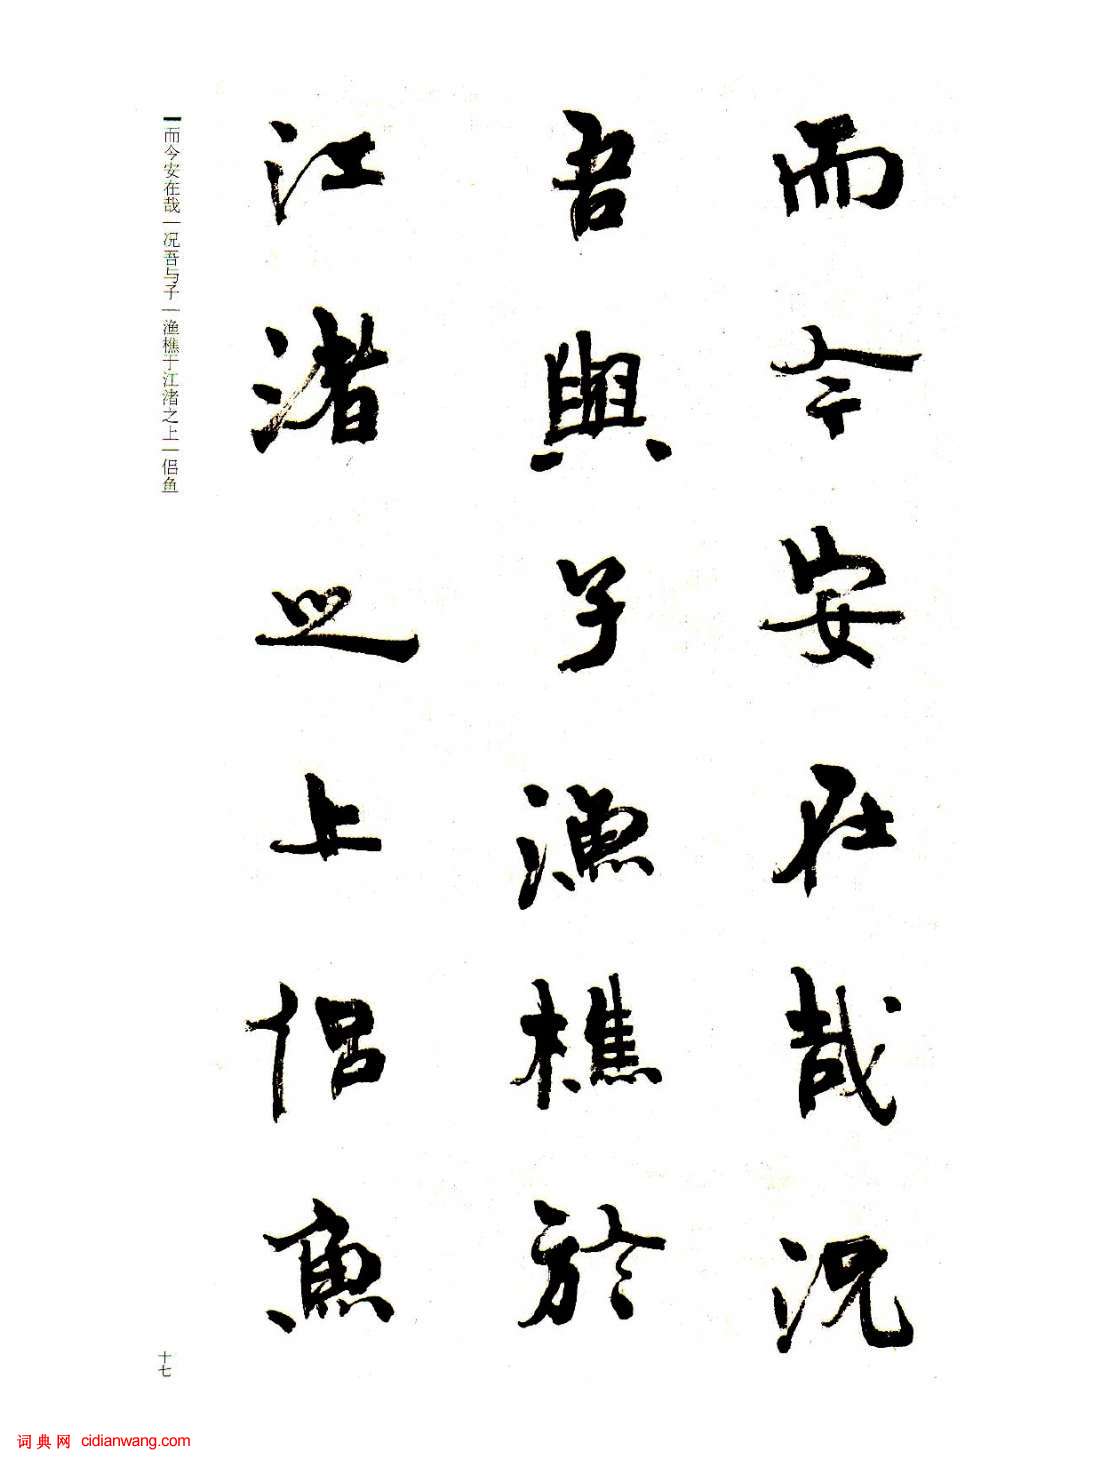 而今安在哉況
吾與子漁樵於
江渚之上侣魚
而今安在哉|况吾与子|渔樵于江渚之上|侣鱼
十七
词典网 cidianwang.com